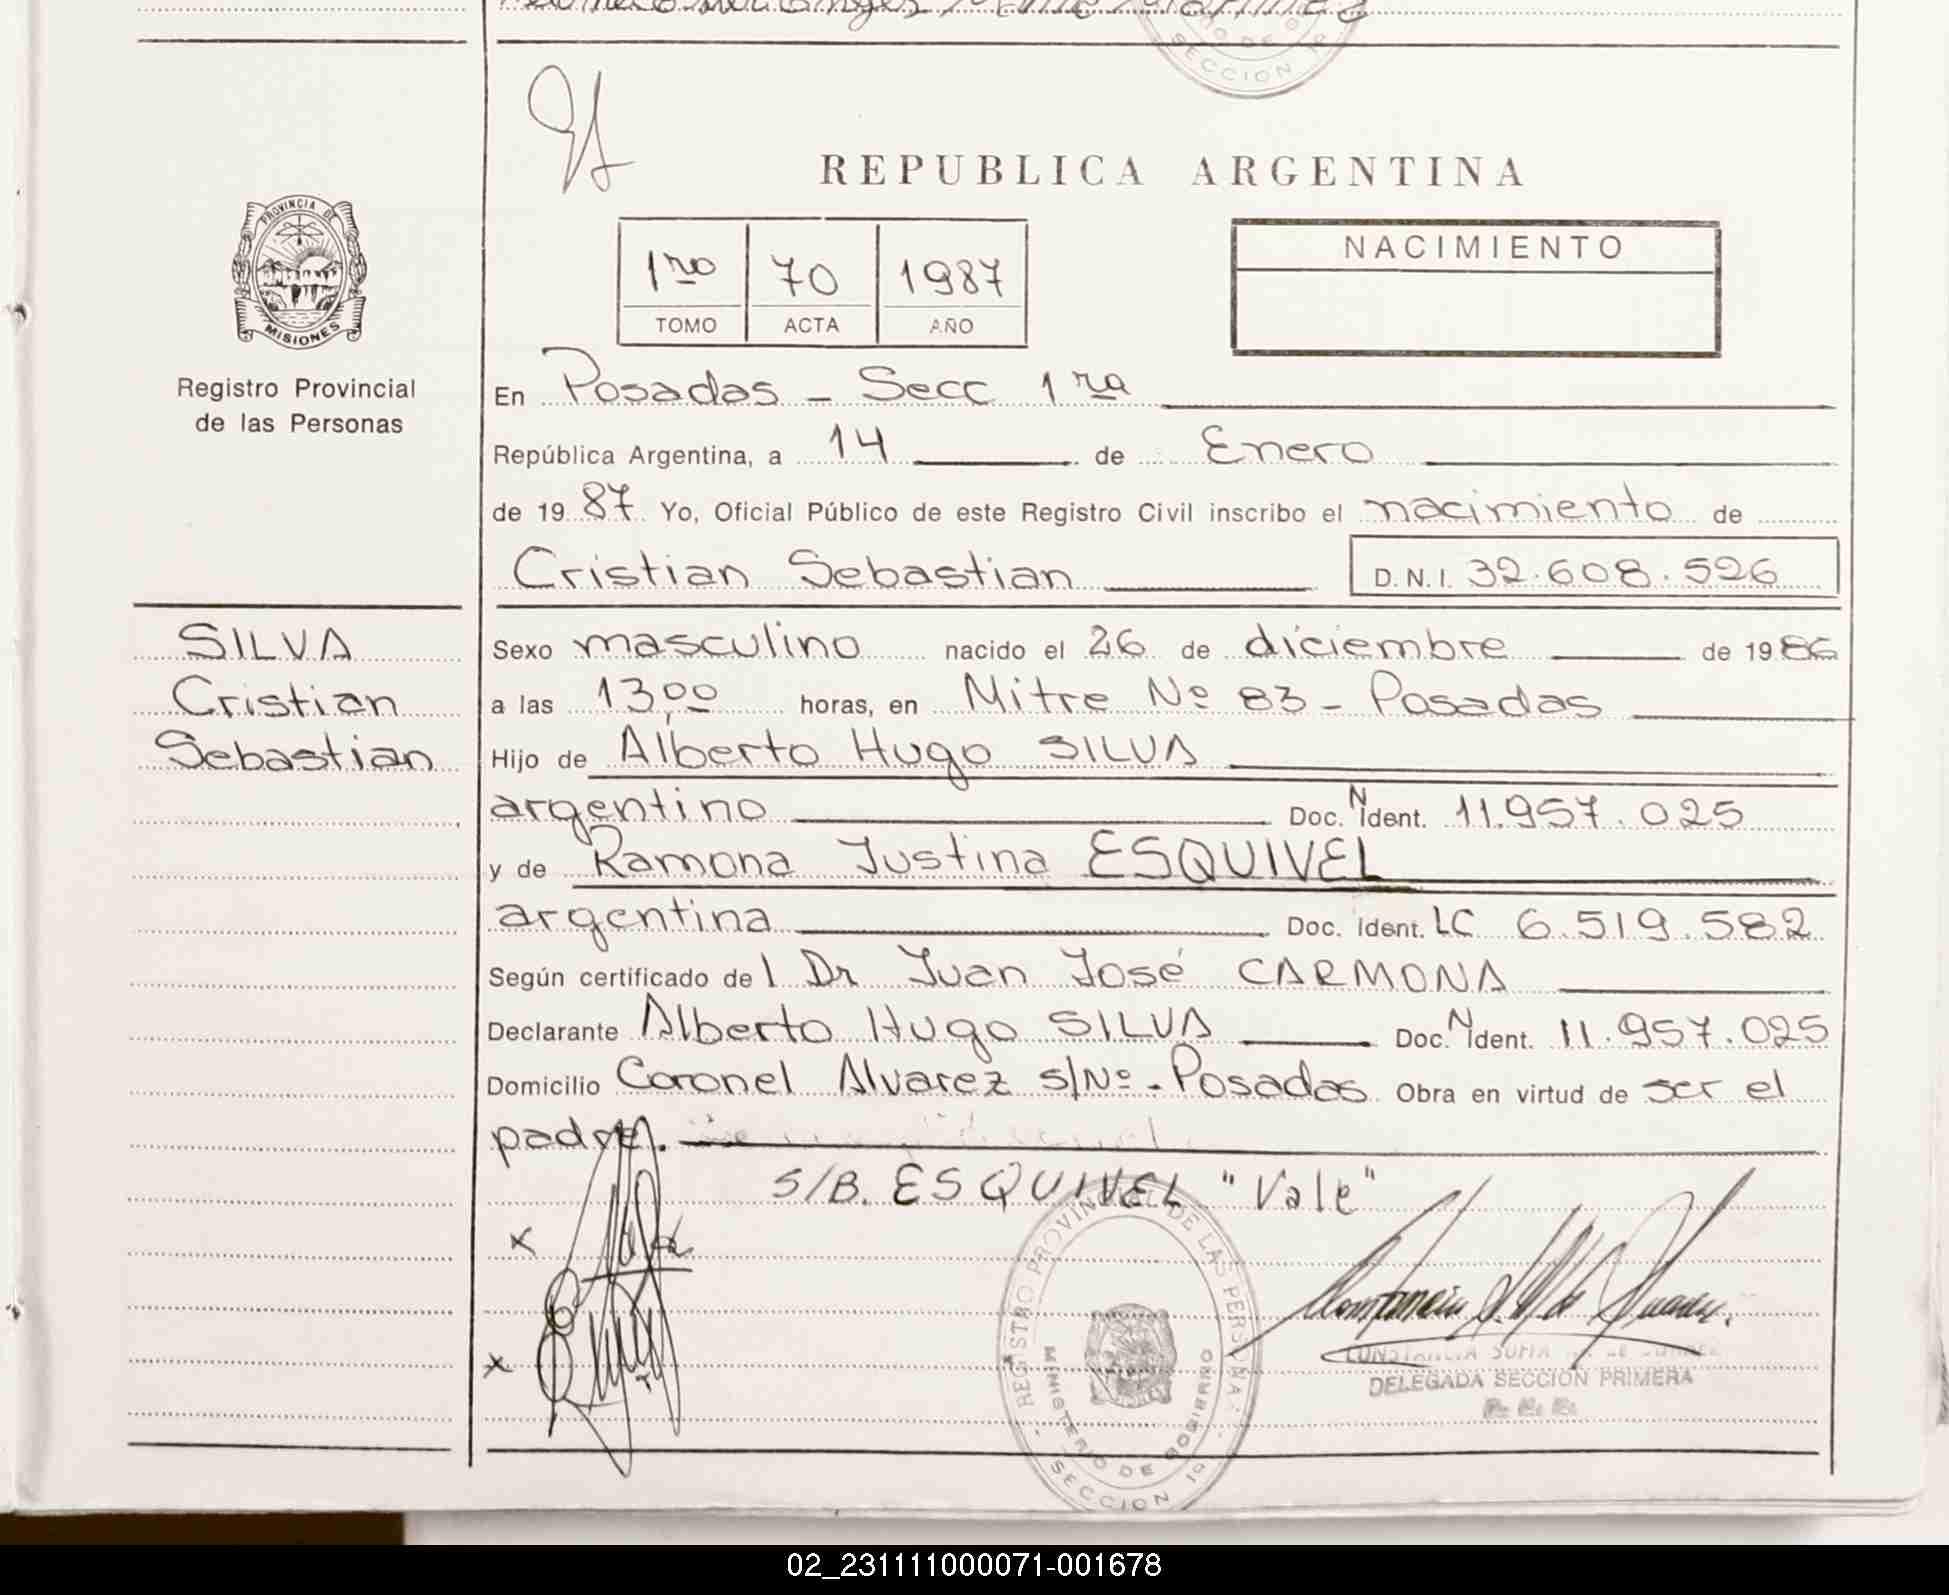 REPUBLICA ARGENTINA
PROVINCIA DE
MISIONES
Registro Provincial
de las Personas
1ro 70 1987
TOMO ACTA AÑO
NACIMIENTO
En Posadas - Secc 1ra
República Argentina, a 14 de Enero
de 1987 Yo, Oficial Público de este Registro Civil inscribo el nacimiento de
Cristian Sebastian D.N.I. 32.608.526
SILVA
Cristian
Sebastian
Sexo masculino nacido el 26 de diciembre de 1986
a las 13,00 horas, en Mitre Nº 83 - Posadas
Hijo de Alberto Hugo SILVA
argentino Doc. N Ident. 11.957.025
y de Ramona Justina ESQUIVEL
argentina Doc. Ident. LC 6.519.582
Según certificado de l Dr Juan José CARMONA
Declarante Alberto Hugo SILVA Doc. N Ident. 11.957.025
Domicilio Coronel Alvarez s/Nº - Posadas Obra en virtud de ser el
padre.
S/B. ESQUIVEL "Vale"
REGISTRO PROVINCIAL DE LAS PERSONAS
MINISTERIO DE GOBIERNO
SECCION 1ª
DELEGADA SECCION PRIMERA
02_231111000071-001678